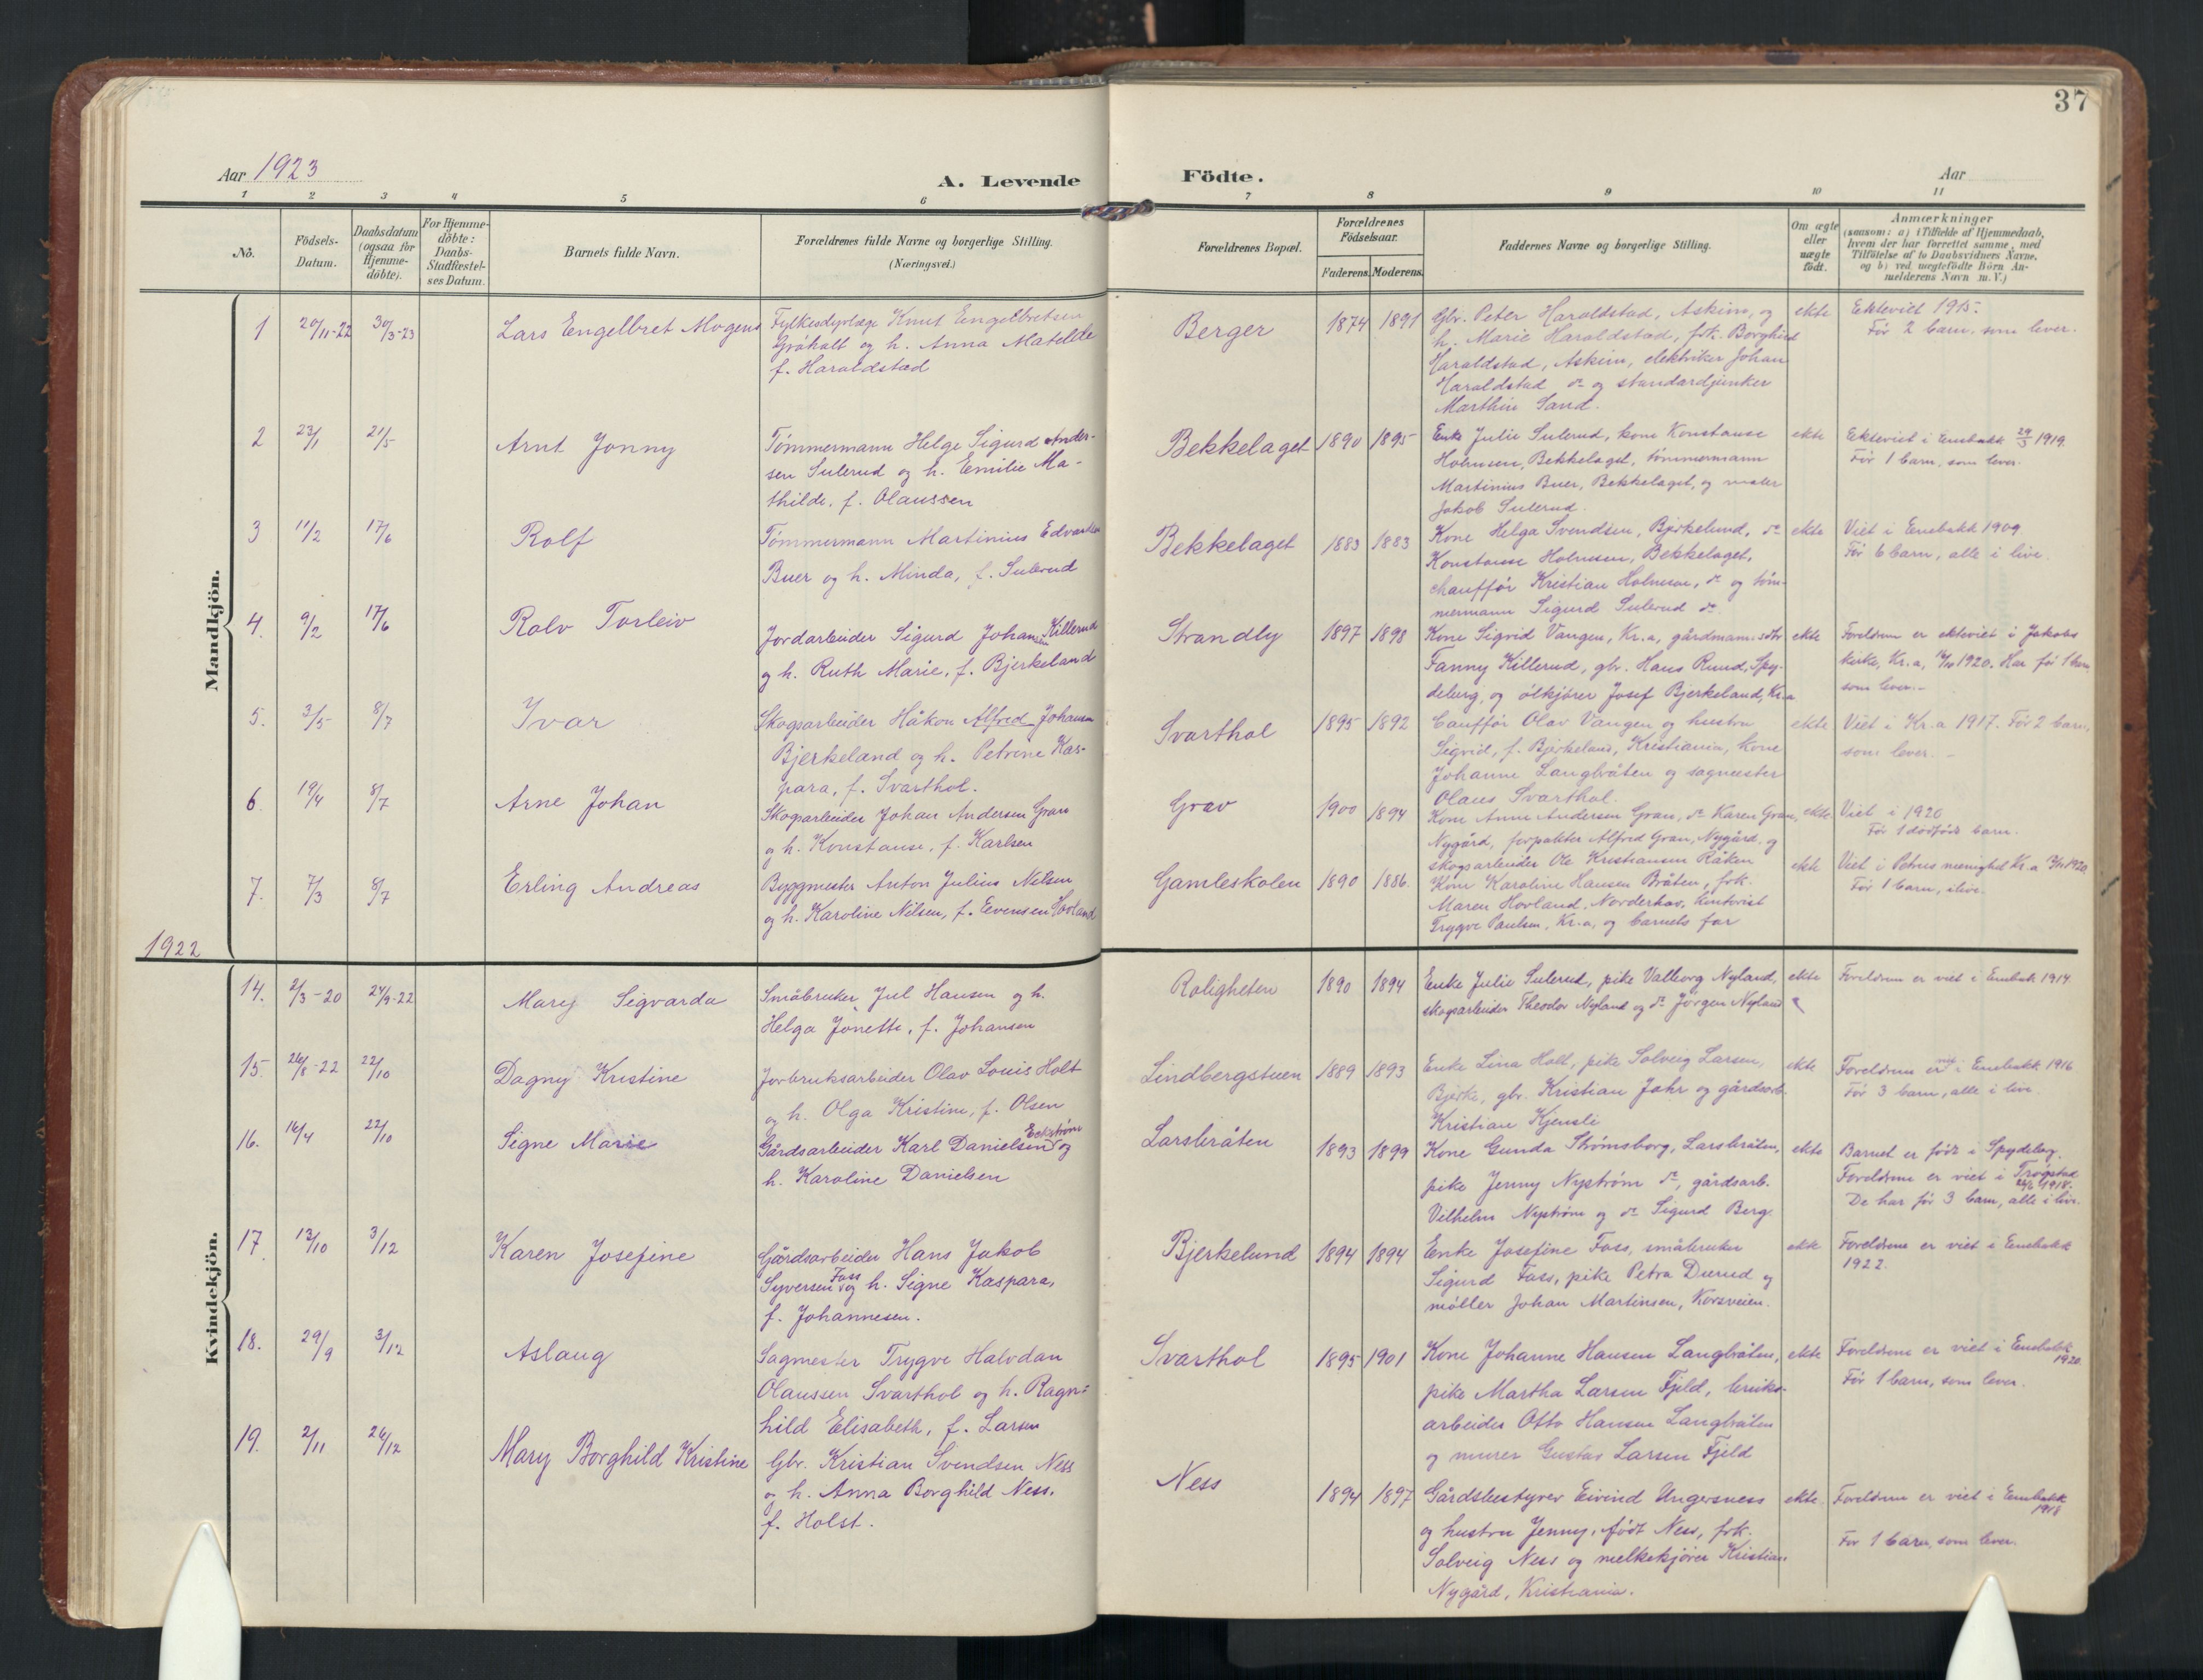 37
Aar 1923
A. Levende Födte.
Aar
1 2 3 4 5 6 7 8 9 10 11
No.
Födsels-
Datum.
Daabsdatum
(ogsaa for
Hjemme-
döbte).
For Hjemme-
döbte:
Daabs-
Stadfæstel-
ses Datum.
Barnets fulde Navn.
Forældrenes fulde Navne og borgerlige Stilling.
(Næringsvei.)
Forældrenes Bopæl.
Forældrenes
Födselsaar.
Faderens. Moderens.
Faddernes Navne og borgerlige Stilling.
Om ægte
eller
uægte
födt.
Anmærkninger
(saasom: a) i Tilfælde af Hjemmedaab,
hvem der har forrettet samme, med
Tilföielse af to Daabsvidners Navne,
og b) ved uægtefödte Börn An-
melderens Navn m. V.)
Mandkjön.
1 20/11-22 30/3-23
Lars Engelbret Mogens
Fylkesdyrlæge Knut Engelbretsen
Gråhalt og h. Anna Matelde
f. Haraldstad
Berger
1874 1891
Gbr. Peter Haraldstad, Askim, og
h. Marie Haraldstad, frk. Borghild
Haraldstad, Askim, elektriker Johan
Haraldstad do og standardjunker
Marthin Sand.
ekte
Ekteviet 1915.
Før 2 barn, som lever.
2 23/1 21/5
Arnt Jonny
Tømmermann Helge Sigurd Ander-
sen Sulerud og h. Emilie Ma-
thilde, f. Olaussen
Bekkelaget
1890 1895
Enke Julie Sulerud, kone Konstanse
Holmsen, Bekkelaget, tømmermann
Martinius Buer, Bekkelaget, og maler
Jakob Sulerud.
ekte
Ekteviet i Enebakk 29/3 1919.
Før 1 barn, som lever.
3 11/2 17/6
Rolf
Tømmermann Martinius Edvardsen
Buer og h. Minda, f. Sulerud
Bekkelaget
1883 1883
Kone Helga Svendsen, Bjerkelund, do
Konstanse Holmsen, Bekkelaget,
chauffør Kristian Holmsen, do og tøm-
mermann Sigurd Sulerud do.
ekte
Viet i Enebakk 1909
Før 6 barn, alle i live.
4. 9/2 17/6
Rolv Torleiv
Jordarbeider Sigurd Johansen Killerud
og h. Ruth Marie, f. Bjerkeland
Strandly
1897 1898
Kone Sigrid Vangen, Kr.a, gårdmanns dtr
Fanny Killerud, gbr. Hans Ruud, Spy-
deberg, og ølkjører Josef Bjerkeland, Kr.a
ekte
Foreldrene er ekteviet i Jakobs
kirke, Kr.a, 16/10 1920. Har før 1 barn
som lever.-
5. 3/5 8/7
Ivar
Skogsarbeider Håkon Alfred Johansen
Bjerkeland og h. Petrine Kas-
para, f. Svarthol.
Svarthol
1895 1892
Cauffør Olav Vangen og hustru
Sigrid, f. Bjerkeland, Kristiania, kone
Johanne Langbråten og sagmester
Olaus Svarthol.
ekte
Viet i Kr.a 1917. Før 2 barn,
som lever. -
6. 19/4 8/7
Arne Johan
Skogsarbeider Johan Andersen Gran
og h. Konstanse, f. Karlsen
Grav
1900 1894
Kone Anna Andersen Gran, do Karen Gran,
Nygård, forpakter Alfred Gran, Nygård, og
skogsarbeider Ole Kristiansen Råken
ekte
Viet i 1920
Før 1 dødfødt barn.
7. 7/3 8/7
Erling Andreas
Byggmester Anton Julius Nilsen
og h. Karoline Nilsen, f. Evensen Hovland
Gamleskolen
1890 1886.
Kone Karoline Hansen Bråten, frk.
Maren Hovland, Norderhov, kontorist
Trygve Paulsen, Kr.a, og barnets far
ekte
Viet i Petrus menighet Kr.a 1920
Før 1 barn, i live.
1922
Kvindekjön.
14. 2/3-20 24/9-22
Mary Sigvarda
Småbruker Jul Hansen og h.
Helga Jonette, f. Johansen
Roligheten
1890 1894
Enke Julie Sulerud, pike Valborg Nyland,
skogsarbeider Theodor Nyland og do Jørgen Nyland
ekte
Foreldrene er viet i Enebak 1914
15. 26/8-22 22/10
Dagny Kristine
Jorbruksarbeider Olav Louis Holt
og h. Olga Kristine, f. Olsen
Lindbergstuen
1889 1893
Enke Lina Holt, pike Solveig Larsen,
Bjerke, gbr. Kristian Jahr og gårdsarb.
Kristian Kjensli
ekte
Foreldrene er viet i Enebakk 1916
Før 3 barn, alle i live.
16. 16/4 22/10
Signe Marie
Gårdsarbeider Karl Danielsen Eckstrøm og
h. Karoline Danielsen
Larsbråten
1893 1899
Kone Gunda Strømsborg, Larsbråten,
pike Jenny Nystrøm do, gårdsarb.
Vilhelm Nystrøm og do Sigurd Berg.
ekte
Barnet er født i Spydeberg.
Foreldrene er viet i Trøgstad
1918.
De har før 3 barn, alle i live.
17 13/10 3/12
Karen Josefine
Gårdsarbeider Hans Jakob
Syversen Foss og h. Signe Kaspara,
f. Johannesen.
Bjerkelund
1894 1894
Enke Josefine Foss, småbruker
Sigurd Foss, pike Petra Durud og
møller Johan Martinsen, Korsveien.
ekte
Foreldrene er viet i Enebakk
1922.
18. 29/9 3/12
Aslaug
Sagmester Trygve Halvdan
Olaussen Svarthol og h. Ragn-
hild Elisabeth, f. Larsen
Svarthol
1895 1901
Kone Johanne Hansen Langbråten,
pike Martha Larsen Fjeld, bruks-
arbeider Otto Hansen Langbråten
og murer Gustav Larsen Fjeld
ekte
Foreldrene er viet i Enebakk
1920.
Før 1 barn, som lever.
19. 2/11 26/12
Mary Borghild Kristine
Gbr. Kristian Svendsen Ness
og h. Anna Borghild Ness.
f. Holst.
Ness
1894 1897
Gårdsbestyrer Eivind Ungersness
og hustru Jenny, født Ness, frk.
Solveig Ness og melkekjører Kristian
Nygård, Kristiania.
ekte.
Foreldrene er viet i Enebakk
1918
Før 1 barn, som lever.